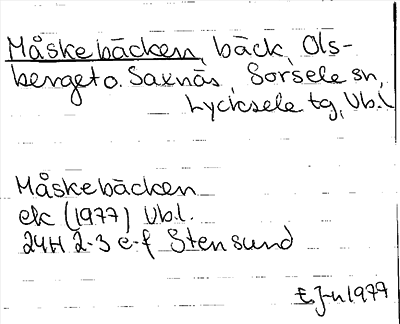 Måskebäcken, bäck, Ols-
berget o. Saxnäs, Sorsele sn,
Lycksele tg, Vb.l.
Måskebäcken
ek (1977) Vb.l.
24H 2-3 e-f Stensund
EJ-n 1977